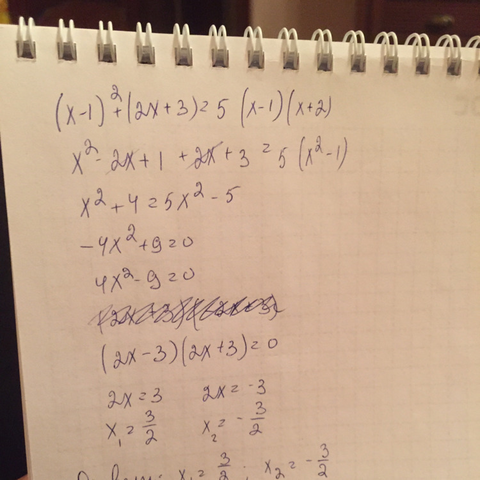 (x-1)²+(2x+3)=5 (x-1)(x+2)
x²-2x+1+2x+3=5(x²-1)
x²+4=5x²-5
-4x²+9=0
4x²-9=0
(2x-3)(2x+3)=0
2x=3 2x=-3
x₁=3/2 x₂=-3/2
x₁=3/2; x₂=-3/2